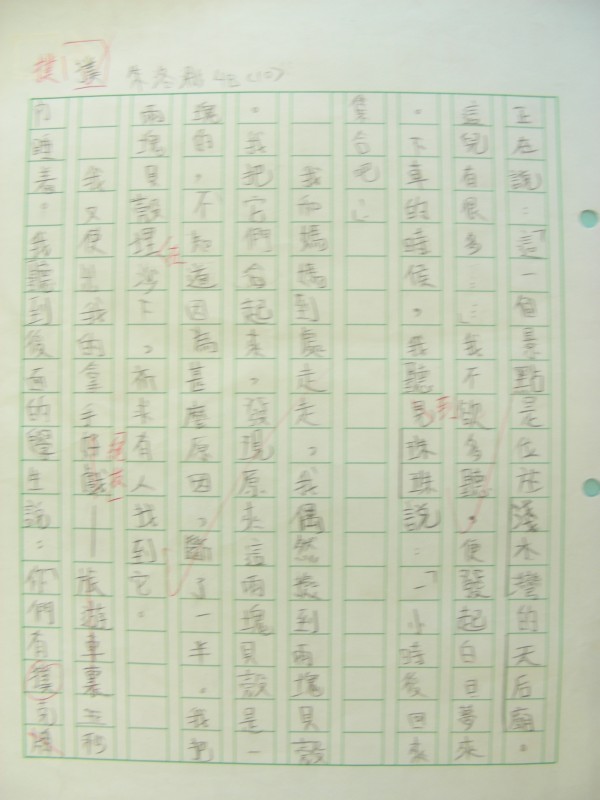 4B(10)
正在說：「這一個景點是位於淺水灣的天后廟。
這兒有很多……」我不欲多聽，便發起白日夢來
。下車的時候，我聽見珠珠說：「一小時後回來
集合吧！」
我和媽媽到處走走。我偶然發到兩塊貝殼
。我把它們合起來，發現原來這兩塊貝殼是一
塊的，不知道因為甚麼原因，斷了一半。我把
兩塊貝殼埋在沙下，未有人找到它。
我又使出我的拿手好戲——旅遊車裏五秒
內睡着。我聽到後面的學生說：你們有